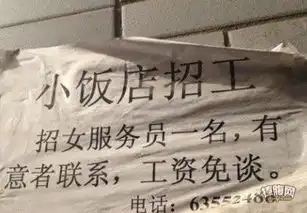 小饭店招工
招女服务员一名,有
意者联系,工资免谈。
电话: